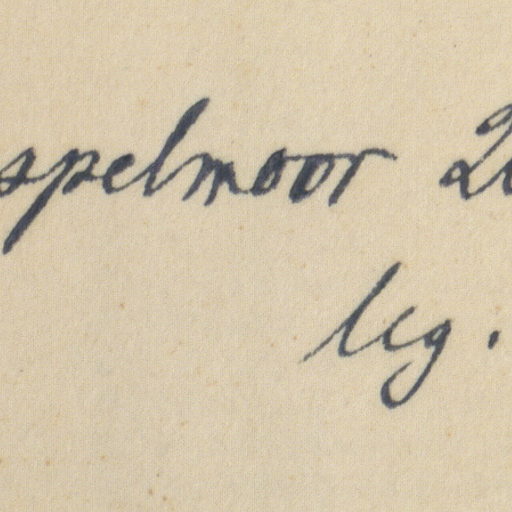 spelmoor 20
leg.